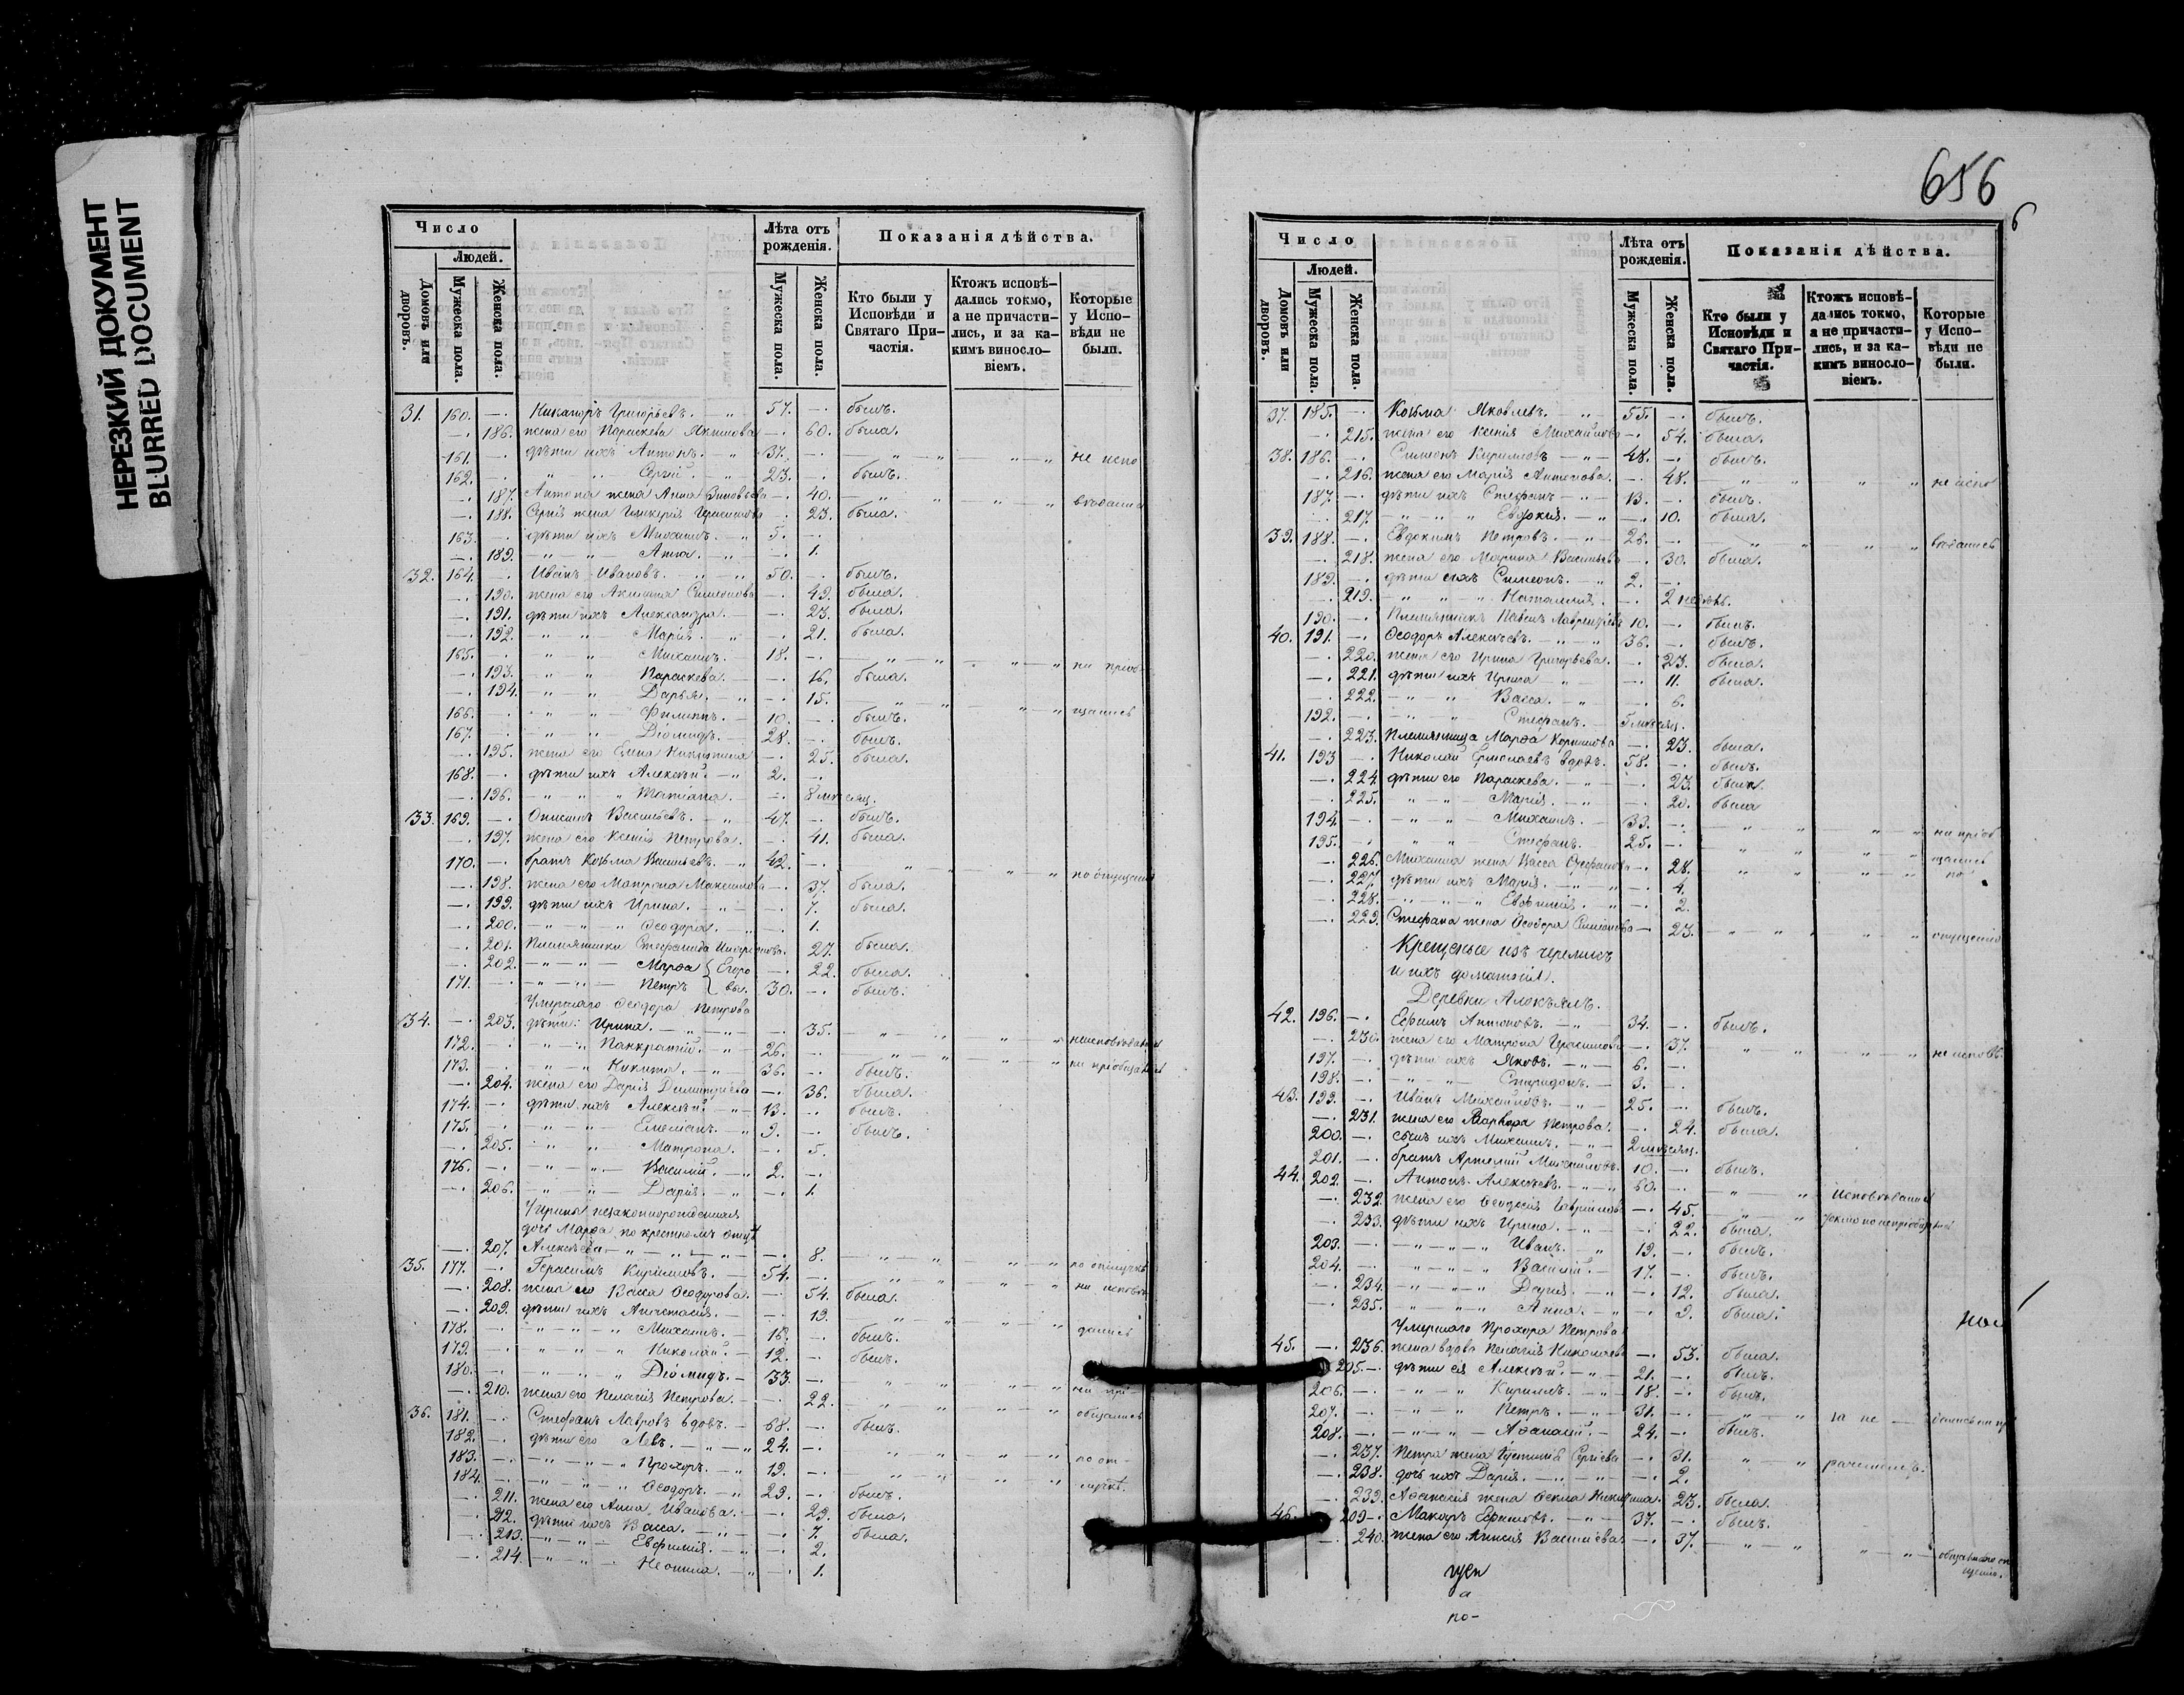 НЕРЕЗКИЙ ДОКУМЕНТ
BLURRED DOCUMENT
Число
Людей.
Домовъ или дворовъ.
Мужеска пола.
Женска пола.
Лѣта отъ рожденія.
Мужеска пола.
Женска пола.
Показанія дѣйства.
Кто были у Исповѣди и Святаго При-
частія.
Ктожъ исповѣ-
дались токмо, а не причасти-
лись, и за ка-
кимъ винословіемъ.
Которые у Испо-
вѣди не были.
31. 160. —. Никаноръ Григорьевъ. — „ — 57. —. былъ.
—. 186. жена его Параскева —. 60. была.
161. —. дѣти ихъ Антонъ. — „ 37. —. — „ — „ „ — „ не испо
162. —. „ „ Сергій. „ 23. —. былъ.
—. 187. Антона жена Анна —. 40. — „ „ „ — „ вѣдались
—. 188. Сергія жена Герасимова —. 23. была.
163. —. дѣти ихъ Михаилъ. — „ 5. —.
—. 189. — „ — „ — Анна. — „ —. 1.
32. 164. —. Иванъ Ивановъ. — „ — „ 50. —. былъ.
—. 190. жена его Симеонова —. 49. была.
—. 191. дѣти ихъ Александра. —. 23. была.
—. 192. „ „ Марія. — „ —. 21. была.
165. —. „ „ Михаилъ. — 18. —. — „ — „ „ — „ не
—. 193. „ „ Параскева. — —. 16. была.
—. 194. „ „ Дарья. „ —. 15. „ „ „ — „ щались
166. —. „ „ — Филиппъ. — 10. —. былъ.
167. —. „ „ — Діомидъ. — „ 28. —. былъ.
—. 195. жена его Никитина —. 25. была.
168. —. дѣти ихъ Алексѣй. — „ 2. —.
—. 196. — „ „ „ Татіана. — —. 8 мѣсяц.
33. 169. —. Васильевъ. — „ 47. —. былъ.
—. 197. жена его Ксенія Петрова. —. 41. была.
170. —. братъ Козьма Васильевъ. — „ 42. —. „ „ „ — „ по опущенію
—. 198. жена его Матрона Максимова —. 37. была.
—. 199. дѣти ихъ Ирина. — „ — —. 7. была.
—. 200. — „ — „ „ Ѳеодора. — „ —. 1.
—. 201. Племянники Стефанида 27. была.
—. 202. — „ — „ — Марѳа { Егоро —. 22. была.
171. —. — „ — „ — Петръ } вы. 30. —. былъ.
Умершаго Ѳеодора Петрова
34. —. 203. дѣти: Ирина. — „ — „ —. 35. — „ „ „ — „ неисповѣдались
172. —. — „ — „ Панкратій. — „ 26. —. „ „ „ — „ не пріобщались
173. —. — „ „ Никита. — „ 36. —. былъ.
—. 204. жена его Дарія Димитріева —. 36. была.
174. —. дѣти ихъ Алексѣй. — „ 13. —. былъ.
175. —. — „ — „ — Емеліанъ. — „ 9. —. былъ.
—. 205. „ „ „ Матрона. —. 5.
176. —. — „ — „ — Василій. — „ 2. —.
—. 206. — „ „ — Дарія. „ —. 1.
У Ирины незаконнорожденная
дочь Марѳа по крестномъ отцѣ
—. 207. Алексѣева — „ — „ — „ —. 8. — „ — „ „ — „ по отлучкѣ
35. 177. —. Герасимъ Кириловъ. — 54. —. „ „ „ — „ не исповѣ-
—. 208. жена его Васса Ѳеодорова. —. 54. была.
—. 209. дѣти ихъ Анастасія. — —. 19. — „ — „ „ — „ дались
178. —. — „ „ — „ Михаилъ. — 16. —. былъ.
179. —. — „ „ „ Николай. — 12. —. былъ.
180. —. — „ „ „ Діомидъ. — 33. —. „ „ „ — „ не прі-
—. 210. жена его Пелагія Петрова. —. 22. — „ „ „ — „ общались
36. 181. —. Стефанъ Лавровъ вдовъ. 68. —. былъ.
182. —. дѣти его Левъ. — „ — „ 24. —. „ „ „ — „ по от-
183. —. — „ — „ — „ Прохоръ. — „ 19. —. „ „ „ — „ лучкѣ.
184. —. — „ „ „ Ѳеодоръ. — „ 29. —. былъ.
—. 211. жена его Анна Иванова. —. 29. была.
—. 212. дѣти ихъ Васса. — „ — —. 7. была.
—. 213. — „ — „ — Евфимія. — „ —. 2.
—. 214. — „ „ — Неонила. — „ —. 1.
656
6
Число
Людей.
Домовъ или дворовъ.
Мужеска пола.
Женска пола.
Лѣта отъ рожденія.
Мужеска пола.
Женска пола.
Показанія дѣйства.
Кто были у Исповѣди и Святаго При-
частія.
Ктожъ исповѣ-
дались токмо, а не причасти-
лись, и за ка-
кимъ винословіемъ.
Которые у Испо-
вѣди не были.
37. 185. —. Козьма Яковлевъ. — „ — 55. —. былъ.
—. 215. жена его Ксенія Михайлова —. 54. была.
38. 186. —. Симеонъ Кириловъ — „ — 48. —. былъ.
—. 216. жена его Марія Антонова. —. 48. „ „ „ „ не испо
187. —. дѣти ихъ Стефанъ — „ 13. —. былъ.
—. 217. — „ — „ „ Евдокія. — „ —. 10. была.
39. 188. —. Евдокимъ Петровъ. — „ — 26. —. „ „ „ „ вѣдались
—. 218. жена его Марина Васильева —. 30. была.
189. —. дѣти ихъ Симеонъ. — „ 2. —.
—. 219. — „ „ „ Наталія. —. 2 недѣль.
190. —. Племянникъ Павелъ Лаврентьевъ 10. —. былъ.
40. 191. —. Ѳеодоръ Алексѣевъ. — „ — „ 36. —. былъ.
—. 220. жена его Ирина Григорьева. —. 23. была.
—. 221. дѣти ихъ Ирина — „ —. 11. была.
—. 222. — „ „ Васса. — „ —. 6.
192. —. — „ „ Стефанъ. — 5 мѣсяц.
—. 223. Племянница Марѳа —. 23. была.
41. 193 —. Николай вдовъ. 58. —. былъ.
—. 224. дѣти его Параскева. — „ —. 23. была.
—. 225. „ — „ — Марія. — „ —. 20. была
194. —. — „ „ — Михаилъ. — 33. —. „ „ — „ не пріоб
195. —. „ „ — Стефанъ. 25. —. „ „ „ „ щались
—. 226. Михаила жена Васса —. 28. „ „ „ — „ по
—. 227. дѣти ихъ Марія. — „ — „ —. 4.
—. 228. — „ — „ „ Евфимія. — „ —. 2.
—. 229. Стефана жена Ѳеодора Симеонова —. 23. — „ — „ „ „ опущенію
Крещеные изъ черемисъ
и ихъ домашніе.
Деревни
42. 196. —. Ефимъ Антоновъ. — „ — 34. —. былъ.
—. 230. жена его Матрона Герасимова —. 37. „ „ „ — „ не исповѣ
197. —. дѣти ихъ Яковъ. — „ — 6. —.
198. —. — „ „ — Спиридонъ. — 3. —.
43. 199. —. Иванъ Михайловъ. — „ — 25. —. былъ.
—. 231. жена его Варвара Петрова. —. 24. была.
200. —. сынъ ихъ Михаилъ. — „ — 2 мѣсяц.
201. —. братъ Артемій Михайловъ. 10. —. былъ.
44. 202. —. Антонъ Алексѣевъ. — „ — „ 60. —. „ „ исповѣдались
—. 232. жена его Ѳеодосія Гаврилова —. 45. „ „ токмо но непріобщались
—. 233. дѣти ихъ Ирина. — „ —. 22. была.
203. —. — „ — „ — „ Иванъ. — „ 19. —. былъ.
204. —. — „ „ „ Василій. — 17. —. былъ.
—. 234. — „ — „ „ Дарія. — „ —. 12. была.
—. 235. „ — „ „ Анна. — „ —. 9. была.
Умершаго Прохора Петрова
45. —. 236. жена вдова Пелагія Николаева —. 53. была.
205. —. дѣти ея Алексѣй. — „ — 21. —. былъ.
206. —. — „ — „ Кирилъ. — „ 18. —. былъ.
207. —. — „ — „ Петръ. — „ — 31. —. — „ — „ за не —
208. —. — „ — „ — Аѳанасій. — 24. —. былъ.
—. 237. Петра жена Сергіева —. 31. „ „ раченіемъ.
—. 238. дочь ихъ Дарія. — „ — „ —. 2.
—. 239. Аѳанасія жена Ѳекла Никитина. 23. была.
46. 209 —. Макаръ Ефимовъ. — „ — 37. —. былъ.
—. 240. жена его Васильева —. 37. — „ — „ „ — „
а
по-